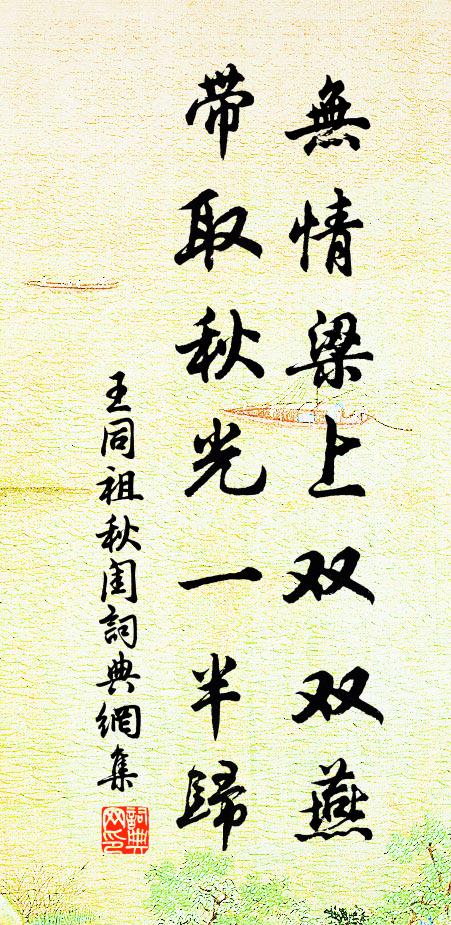 無情梁上双双燕
带取秋光一半歸
王同祖秋闺詞典網集
詞典網印